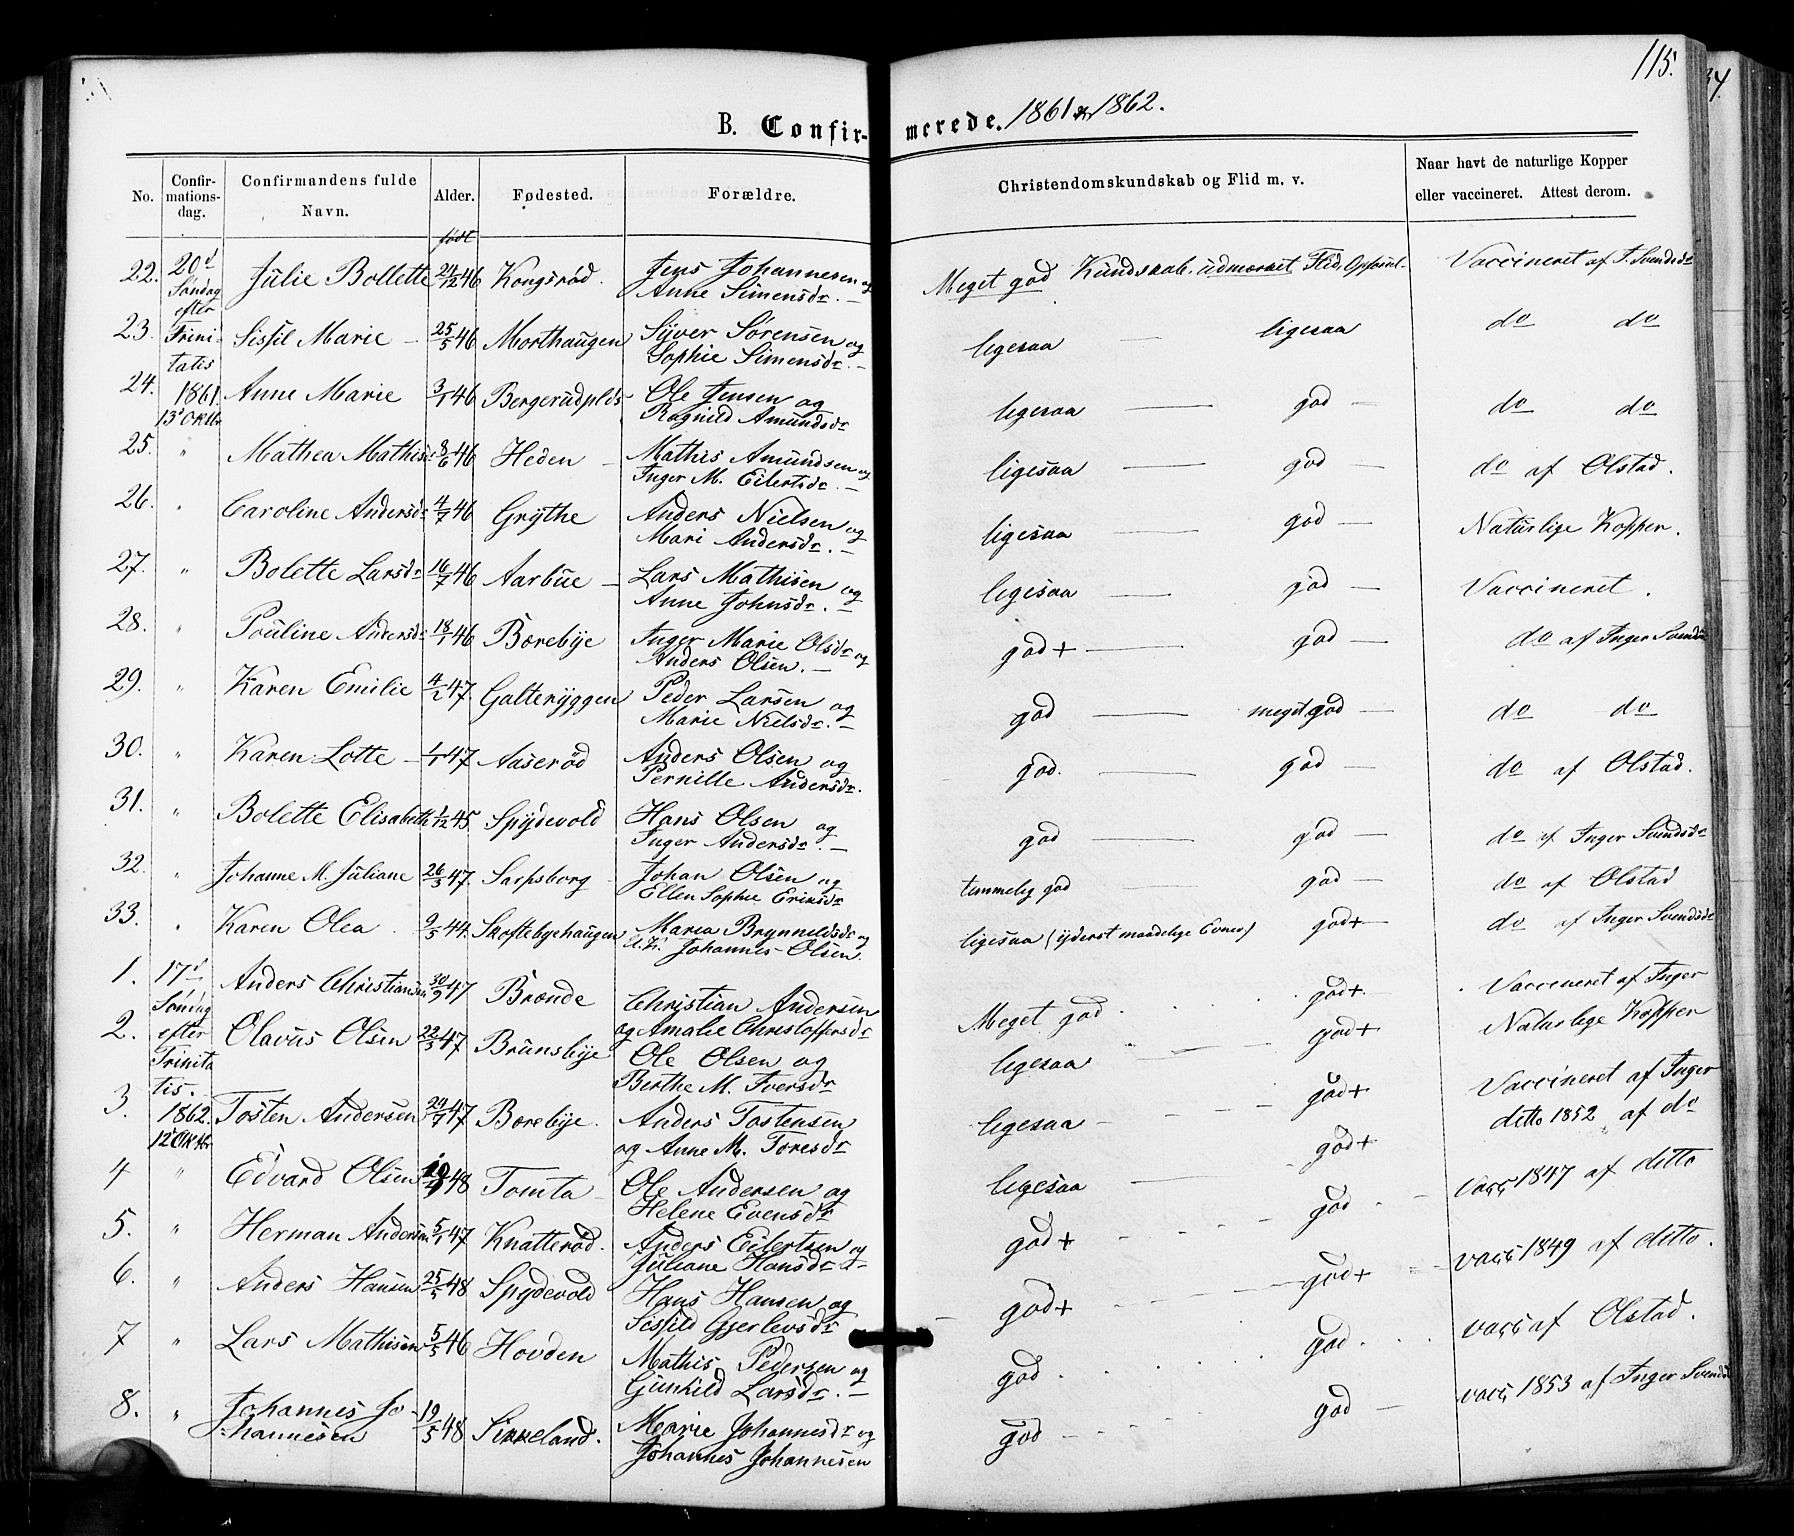 115.
34.
B. Confirmerede. 1861 & 1862.
No. Confirmationsdag. Confirmandens fulde Navn. Alder. Fødested. Forældre. Christendomskundskab og Flid m. v. Naar havt de naturlige Kopper eller vaccineret. Attest derom.
født
22. 20d Søndag Julie Bollette 24/12 46 Kongsrød. Jens Johannesen og Anne Simensdr. — Meget god Kundskab, udmærket Flid, Vaccineret af I. Svendsdr
efter
23. Trinitatis Sissil Marie — 25/5 46 Morthaugen Syver Sørensen og Sophie Simensdr. — ligesaa — ligesaa do do
24. 1861. 13d Oktbr Anne Marie 3/1 46 Bergerudplds Ole Jensen og Ragnild Amundsdr ligesaa — god — do do
25. " Mathea Mathis 8/6 46 Heden — Mathis Amundsen og Inger M. Eilertsdr. — ligesaa — god — do af Olstad.
26. " Caroline Andersdr 4/7 46 Grythe Anders Nielsen og Mari Andersdr. — ligesaa — god — Naturlige Kopper.
27. " Bolette Larsdr 16/7 46 Aarbue — Lars Mathisen og Anne Johnsdr. — ligesaa — god — Vaccineret.
28. " Pouline Andersdr 18/1 46 Borebye Inger Marie Olsdr og Anders Olsen. — god+ — god — do af Inger Svendsdr
29. " Karen Emilie 4/1 47. Galteryggen Peder Larsen og Marie Nielsdr. — god — meget god — do do
30. " Karen Lotte — 1/1 47 Aaserød Anders Olsen og Pernille Andersdr. god. — god — do af Olstad.
31. " Bolette Elisabeth 1/12 45. Spydevold Hans Olsen og Inger Andersdr. — god — god — do af Inger Svendsdr
32. " Johanne M. Juliane 26/3 47. Sarpsborg — Johan Olsen og Ellen Sophie Eriksdr temmelig god — god — do af Olstad
33. " Karen Olea. 9/5 44. Skoftebyehaugen Maria Brynnildsdr og Johannes Olsen. ligesaa (yderst maadelige Evner) god+ — do af Inger Svendsdr
1. 17d Søndag Anders Christiansen 30/9 47 Brønde Christian Andersen og Amalie Christoffersdr Meget god god+ Vaccineret af Inger
2. efter Trinitatis. Olavus Olsen 22/3 47 Brunsbye Ole Olsen og Berthe M. Iversdr ligesaa god+ Naturlige Kopper
3. 1862. 12d Oktbr Tosten Andersen 24/7 47 Borebye. Anders Tostensen og Anne M. Toresdr ligesaa — god+ Vaccineret af Inger
4 " Edvard Olsen 48 Tomta — Ole Andersen og Helene Evensdr ligesaa — god+ ditto 1852 af do
5. " Herman Andersen 5/1 47 Knatterød. Anders Eilertsen og Juliane Hansdr — god+ god — vacc 1847 af ditto
6. " Anders Hansen 25/5 48 Spydevold Hans Hansen og Sissild Gjerlevsdr god+ — god+ vacc 1849 af ditto.
7 " Lars Mathisen 5/5 46 Hovden Mathis Pedersen og Gunhild Larsdr. — god. god. vacc af Olstad.
8. " Johannes Johannesen 19/5 48 Sikkeland. Marie Johannesdr og Johannes Johannesen god god — vacc 1853 af Inger Svendsd